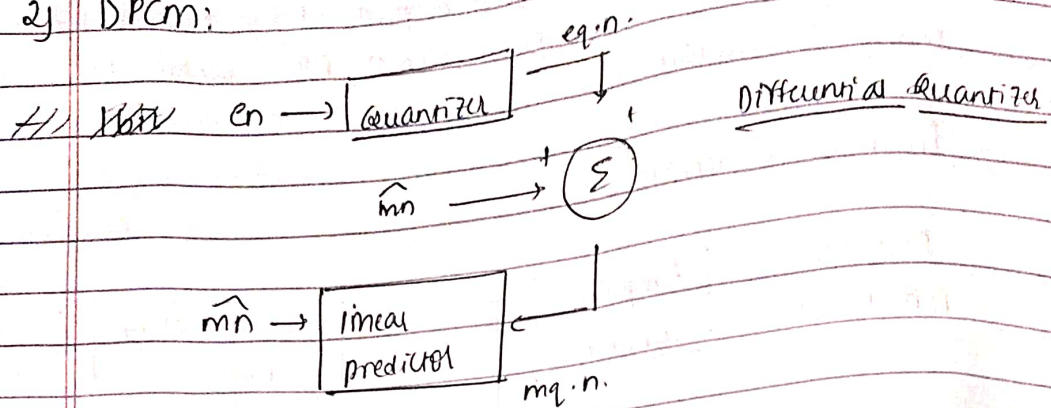 2) DPCM:
eq.n.
en → Quantizer
Differential Quantizer
+
+
m̂n → Σ
m̂n → linear
predictor
mq.n.